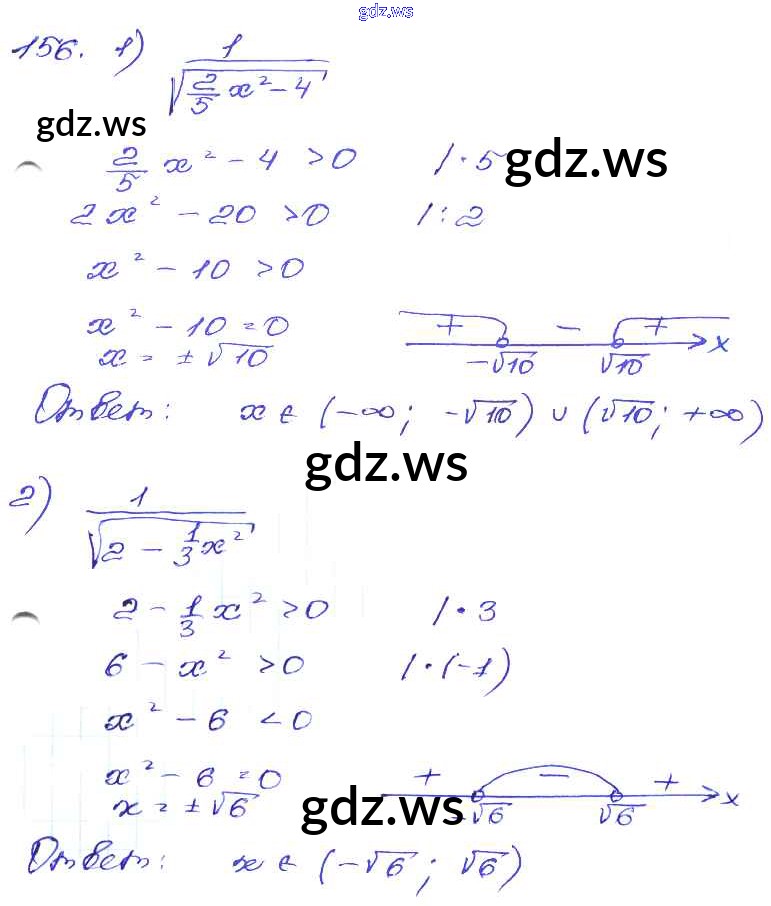 gdz.ws
156. 1) 1/√(2/5 x² - 4)
gdz.ws
2/5 x² - 4 > 0 | · 5 gdz.ws
2x² - 20 > 0 | : 2
x² - 10 > 0
x² - 10 = 0 + - +
x = ±√10 -√10 √10 x
Ответ: x ∈ (-∞; -√10) ∪ (√10; +∞)
gdz.ws
2) 1/√(2 - 1/3 x²)
2 - 1/3 x² > 0 | · 3
6 - x² > 0 | · (-1)
x² - 6 < 0
x² - 6 = 0 + - +
x = ±√6 gdz.ws -√6 √6 x
Ответ: x ∈ (-√6; √6)